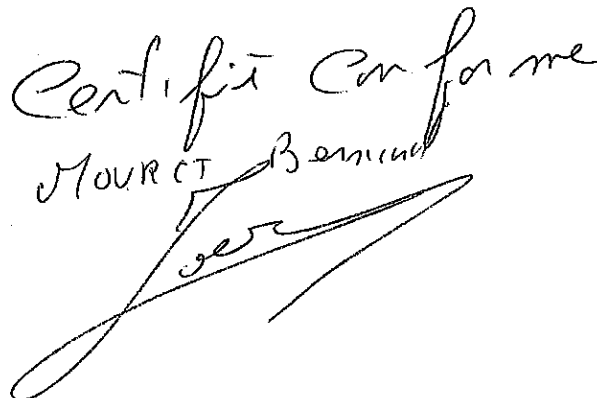 Certifié Conforme
MOURET Bernard